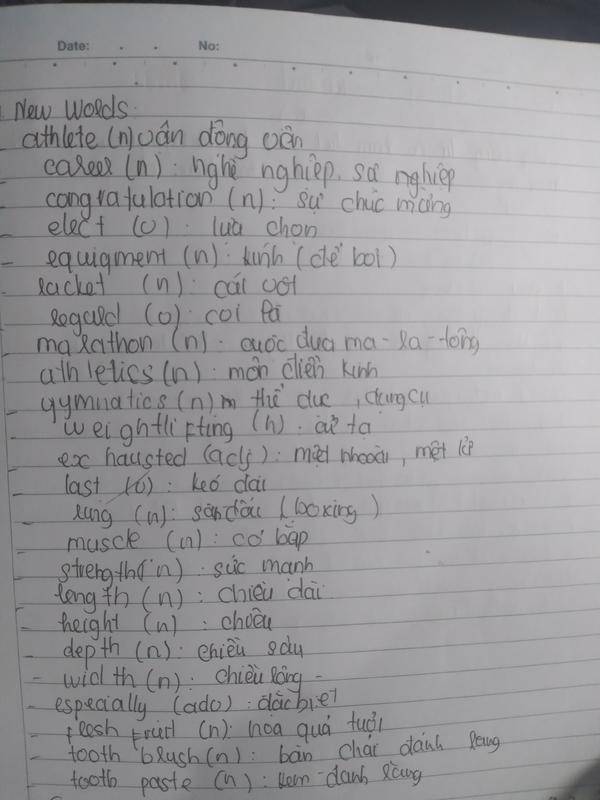 Date: . . No:
New Words:
athlete (n) vân đông vân
- career (n): nghề nghiệp, sự nghiệp
- congratulation (n): sự chúc mừng
- elect (v): lưa chon
- equiqment (n): kính (để bơi)
- racket (n): cái vơt
regard (v): coi là
- marathon (n): cuộc đua ma-la-tông
athletics (n): môn điền kinh
- gymnatics (n) m thể duc, dung cu
- weightlifting (n): cử ta
- exhausted (adj): mệt nhoài, mệt lử
last (v): keó dài
- ring (n): sàn đấu (boxing)
- muscle (n): cơ bắp
- strength (n): sức manh
- length (n): chiều dài
- height (n): chiều
- depth (n): chiều sâu
- width (n): chiều rông -
- especially (adv): đăc biet
- fresh fruit (n): hoa quả tươi
- tooth brush (n): bàn chải đánh rang
- tooth paste (n): kem đanh răng